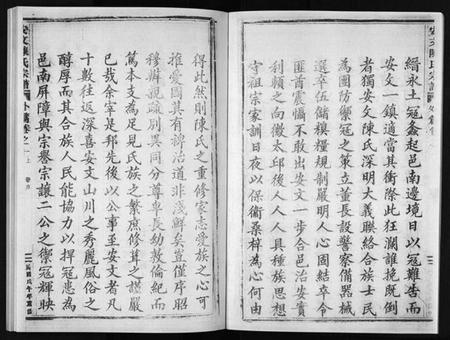 縉永土寇鑫起邑南邊境日以寇難告而
安文一鎮適當其衝際此狂瀾誰挽既倒
者獨安文陳氏深明大義聯絡合族士民
為團防禦寇之策立董長設警察備器械
選卒伍儲糗糧規制嚴明人心固結卒令
匪首震懾不敢出安文一步合邑治安實
利賴之向微太邱後人人人具種族思想
守祖宗家訓日夜以保衛桑梓為心何由
得此然則陳氏之重修家志愛族之心可
推愛國其有裨治道非淺鮮矣豈僅序昭
穆辨親疏別異同分尊卑長幼敘倫紀而
篤本支為足見氏族之繁庶修葺之謹嚴
已哉余宰是邦先後以公事至安文者凡
十數往返深喜安文山川之秀麗風俗之
醇厚而其合族人民能協力以捍寇患為
邑南屏障與宗譽宗讓二公之禦寇輝映
安文陳氏宗譜